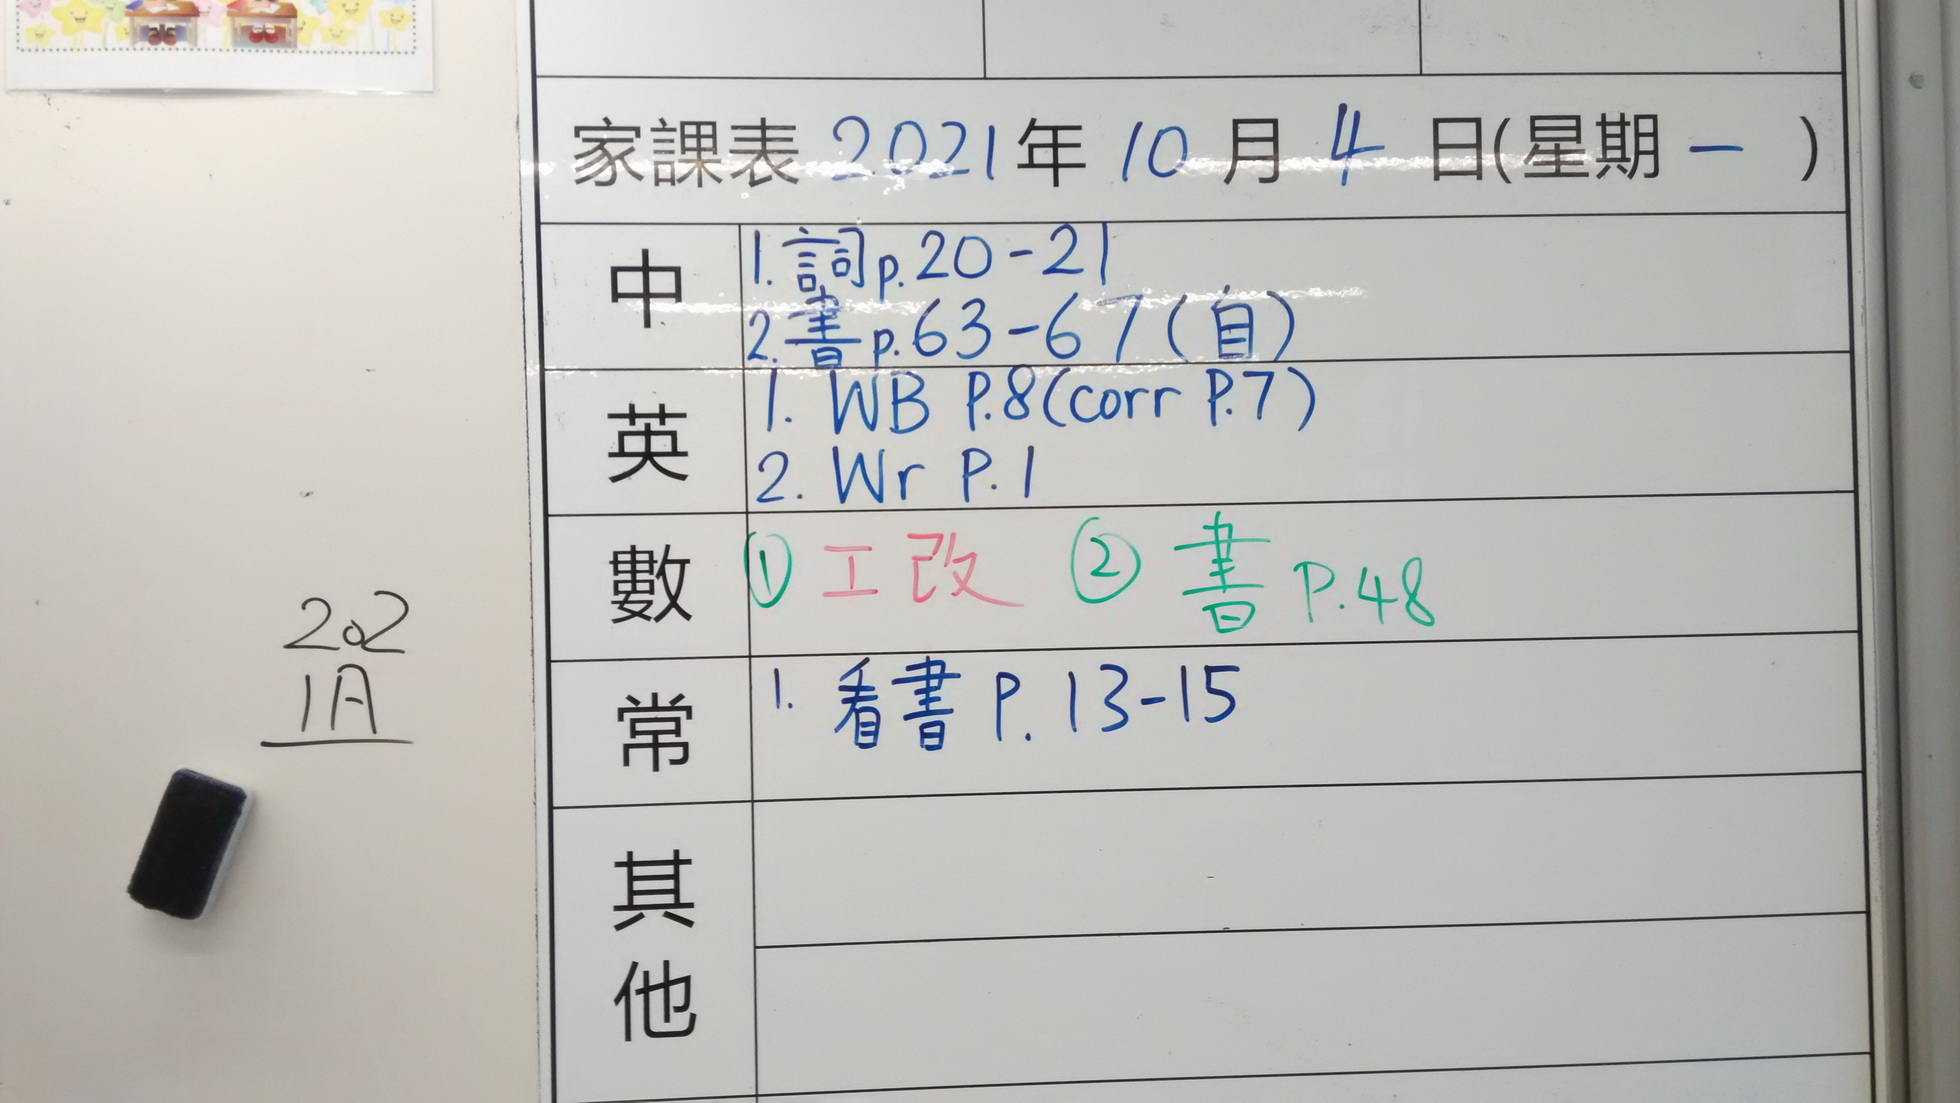 家課表 2021年 10月 4日(星期一)
中
1. 詞 p.20-21
2. 書 p.63-67(自)
英
1. WB P.8(corr P.7)
2. Wr P.1
數
① 工改 ② 書 P.48
常
1. 看書 P.13-15
其他
202
1A